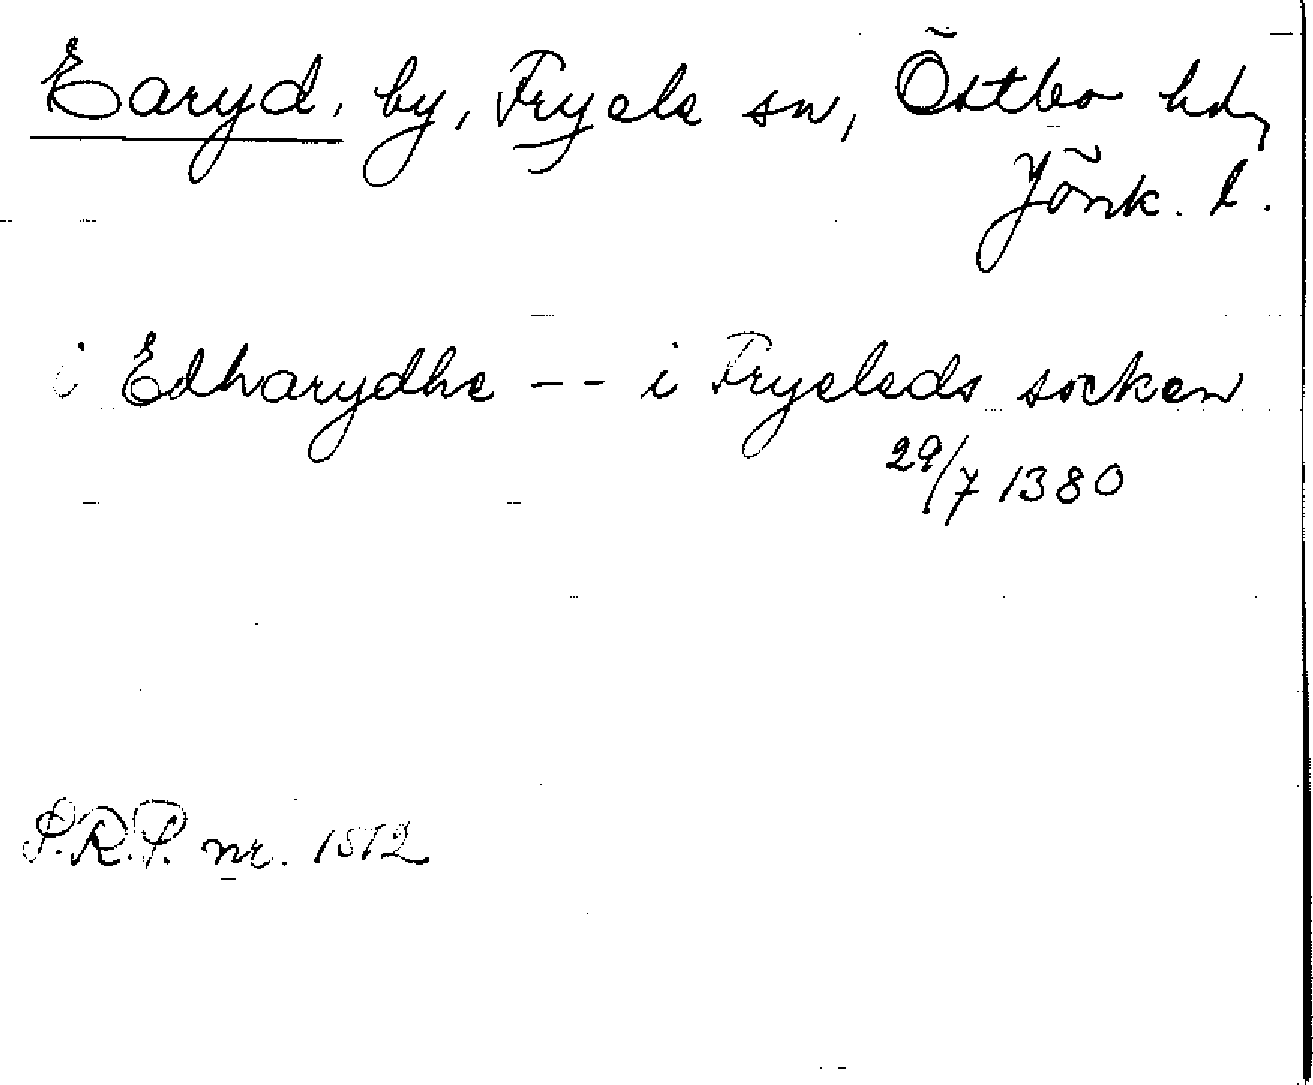 Earyd, by, Fryele sn, Östbo hd,
Jönk. l.
i Edharydhe -- i Fryeleds socken
29/7 1380
S.R.P. nr. 1512